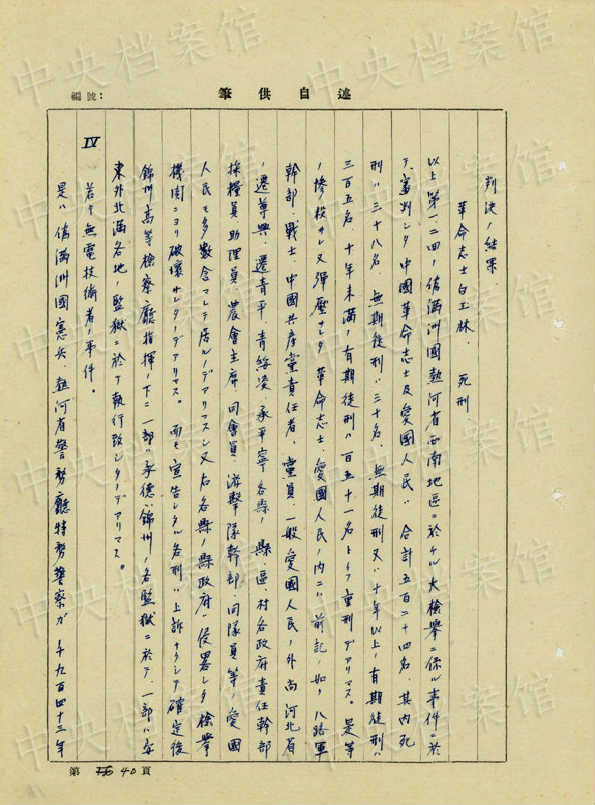 編號：
述自供筆
判決ノ結果、
革命志士白玉林、 死刑
以上第一、二四、偽満洲国熱河省西南地区ニ於ケル大検挙ニ係ル事件ニ於
テ、審判シタ中國革命志士及愛國人民ハ 合計五百二十四名、其内死
刑ハ三十八名、無期徒刑ハ三十名、無期徒刑又ハ十年以上ノ有期徒刑ハ
三百五名、十年未満ノ有期徒刑ハ百五十一名トイフ重刑デアリマス。是等
ノ惨殺サレ又弾圧サレタ革命志士、愛國人民ノ内ニハ前記ノ如ク八路軍
幹部、戦士、中國共産黨責任者、黨員、一般愛國人民ノ外尚河北省
ノ遷遵興、遷青平、青綏凌、承平寧各縣ノ縣、區村各政府責任幹部
採糧員、助理員、農會主席、同會員、游撃隊幹部、同隊員等ノ愛國
人民モ多数含マレテ居ルノデアリマスシ又右各縣ノ縣政府ノ侵畧シタ検挙
機関ニヨリ破壊サレタノデアリマス。而モ宣告シタル各刑ハ上訴ナクシテ確定後
錦州高等検察廳指揮ノ下ニ一部ハ承徳、錦州ノ各監獄ニ於テ、一部ハ安
東外北満各地ノ監獄ニ於テ執行致シタノデアリマス。
Ⅳ 若干無電技術者ノ事件。
是ハ偽満洲國憲兵、熱河省警務廳特務警察ガ 千九百四十三年
第 40頁
中央档案馆